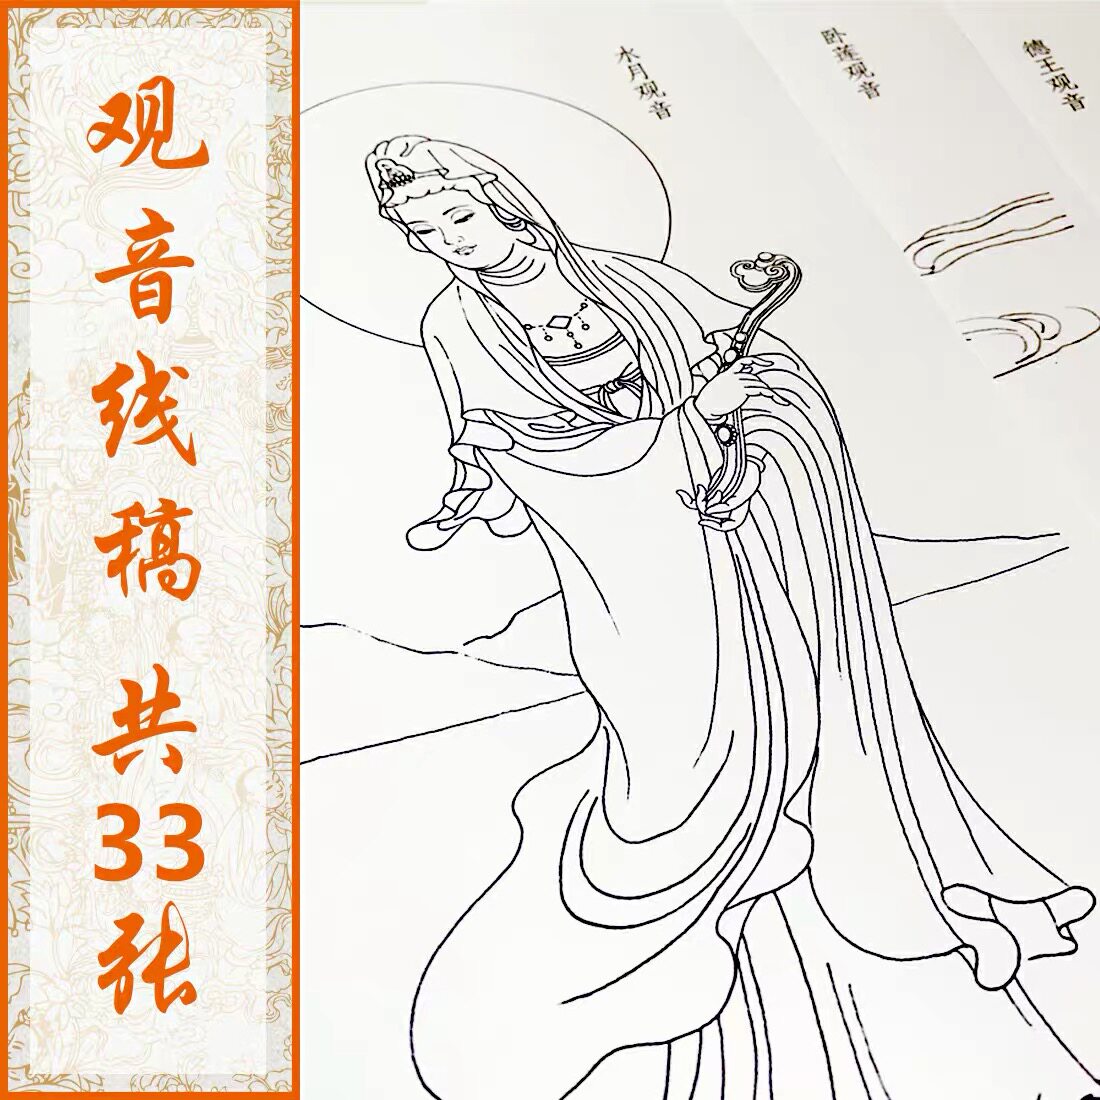 观音线稿 共33张
水月观音
卧莲观音
德王观音